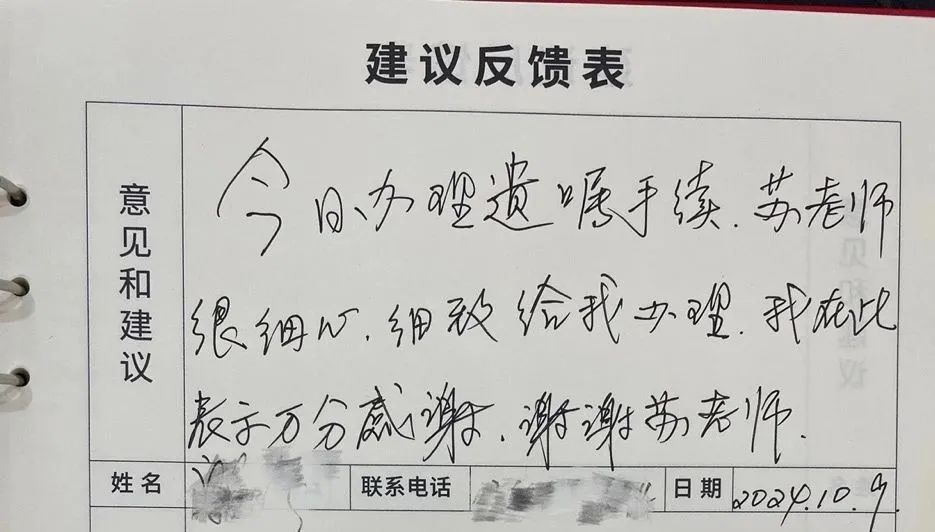 建议反馈表
意见和建议
今日办理遗嘱手续.苏老师
很细心.细致给我办理.我在此
表示万分感谢.谢谢苏老师.
姓名 联系电话 日期 2024.10.9